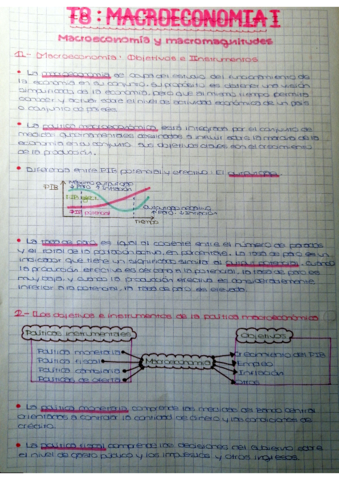 T8: MACROECONOMÍA I
Macroeconomía y macromagnitudes
1.- Macroeconomía: Objetivos e Instrumentos
• La macroeconomía se ocupa del estudio del funcionamiento de
la economía en su conjunto. Su propósito es obtener una visión
simplificada de la economía, pero que al mismo tiempo permita
conocer y actuar sobre el nivel de actividad económica de un país
o conjunto de países.
• La política macroeconómica está integrada por el conjunto de
medidas gubernamentales destinadas a influir sobre la marcha de la
economía en su conjunto. Sus objetivos claves son el crecimiento
de la producción,
• Diferencia entre PIB potencial y efectivo: El
PIB
tiempo
• La tasa de paro es igual al cociente entre el número de parados
y el total de la población activa, en porcentaje. La tasa de paro es un
indicador que tiene un significado similar al output potencial. Cuando
la producción efectiva es cercana a la potencial, la tasa de paro es
muy baja y cuando la producción efectiva es considerablemente
inferior a la potencial, la tasa de paro es elevada.
2.- Los objetivos e instrumentos de la política macroeconómica
Políticas instrumentales
Objetivos
Política monetaria
Política fiscal
Política cambiaria
Políticas de oferta
Macroeconomía
Crecimiento del PIB
Empleo
Inflación
Otros
• La política monetaria comprende las medidas del Banco Central
orientadas a controlar la cantidad de dinero y las condiciones de
crédito.
• La política fiscal comprende las decisiones del gobierno sobre
el nivel de gasto público y los impuestos y otros ingresos.